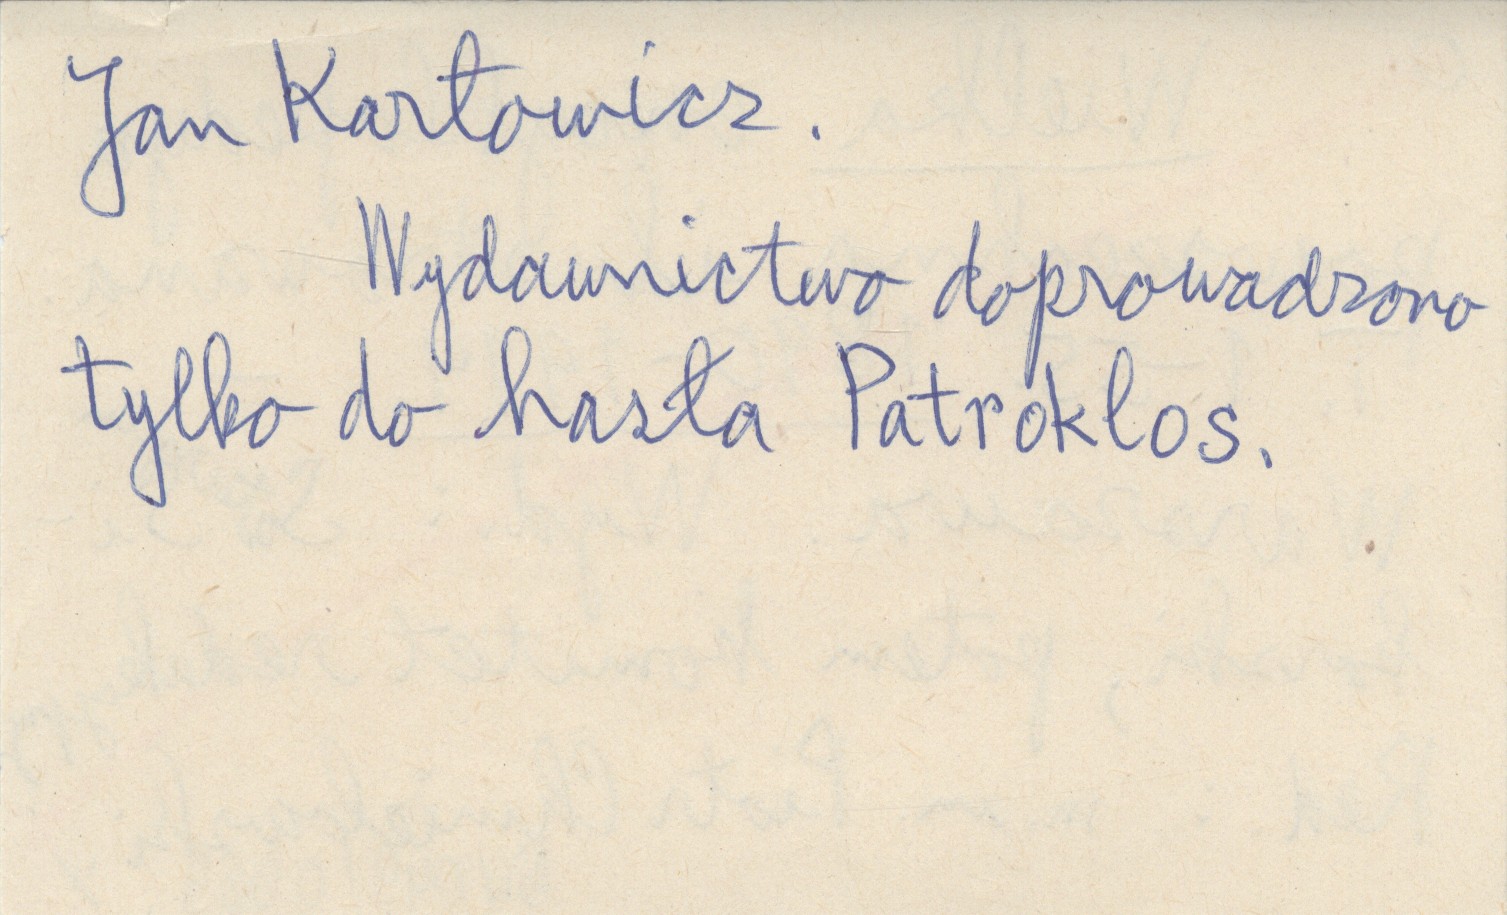 Jan Karłowicz.
Wydawnictwo doprowadzono
tylko do hasła Patroklos.